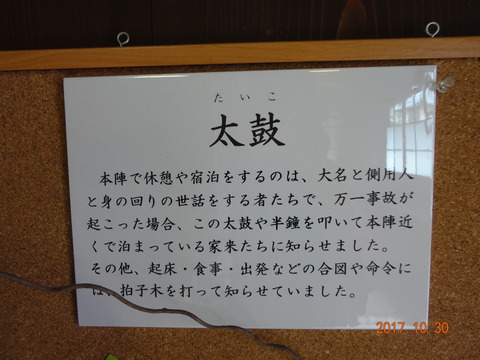 たいこ
太鼓
本陣で休憩や宿泊をするのは、大名と側用人
と身の回りの世話をする者たちで、万一事故が
起こった場合、この太鼓や半鐘を叩いて本陣近
くで泊まっている家来たちに知らせました。
その他、起床・食事・出発などの合図や命令に
は、拍子木を打って知らせていました。
2017 10 30